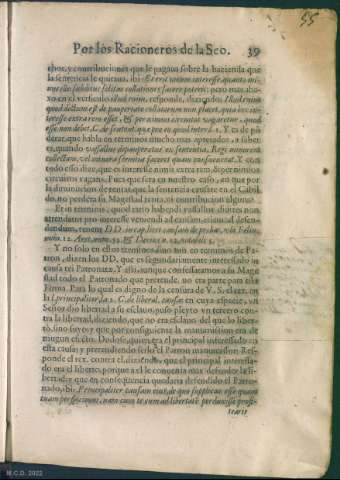 55
Por los Racioneros de la Seo. 39
chos, y contribuciones que le pagava sobre la hazienda que
la sentencia le quitava, ibi: Et erit nimium interesse, quanto mi-
nus ille subditus solitus collationes facere poterit: pero mas aba-
xo en el versiculo illud enim, responde, diziendo: Illud enim
quod dictum est de paupertate collationum non placet, quia hoc in-
teresse extra rem esset, & per nimios circuitus vagaretur, quod
esse non debet, C. de sentent. que pro eo quod interest l. 1. Y es de po-
derar que habla en terminos mucho mas apretados, a saber
es, quando vassallus depauperatur ex sententia. Regi minores
collectas, vel minora servitia faceret quam
todo esso dize, que es interesse nimis extra rem, & per nimios
circuitus vagans. Pues que sera en nuestro caso, en que por
la diminucion de renta, que la sentencia causasse en el Cabil-
do, no perdera su Magestad renta, ni contribucion alguna.
Et in terminis, quod tatio habendi vassallos divites non
attendatur pro interesse veniendi ad causam, etiam ad defen-
dendum, tenent DD. in cap. licet causam de probat. vbi Felin.
num. 12. Aret. num. 53. & Decius n. 22. notabili 1.
Y no solo en estos terminos, sino aun en terminos de Pa-
tron, dizen los DD. que es segundariamente interessado in
causa rei Patronatæ. Y assi, aunque confessaramos a su Mage
stad todo el Patronado que pretende, no era parte para esta
Firma. Para lo qual es digno de la censura de V. S. el text. en
la l. principaliter, la 2. C. de liberal. causa: en cuya especie, vn
Señor dio libertad a su esclavo, puso pleyto vn tercero con-
tra la libertad, diziendo, que no era esclavo del que lo liber-
tó, sino suyo: y que por consiguiente la manumission era de
ningun efecto. Dudose, quien era el principal interessado en
esta causa: y pretendiendo serlo el Patron manumissor, Res-
ponde el text. contra el, diziendo, que el principal interessa-
do era el liberto, porque a el le convenia mas defender la li-
bertad: y que en consequencia quedaria defendido el Patro-
nado, ibi: Principaliter causam eius, de quo supplicas esse quam
tuam perspicimus, nam cum te eum ad libertatem perduxisse profi-
tearis
M.C.D. 2022